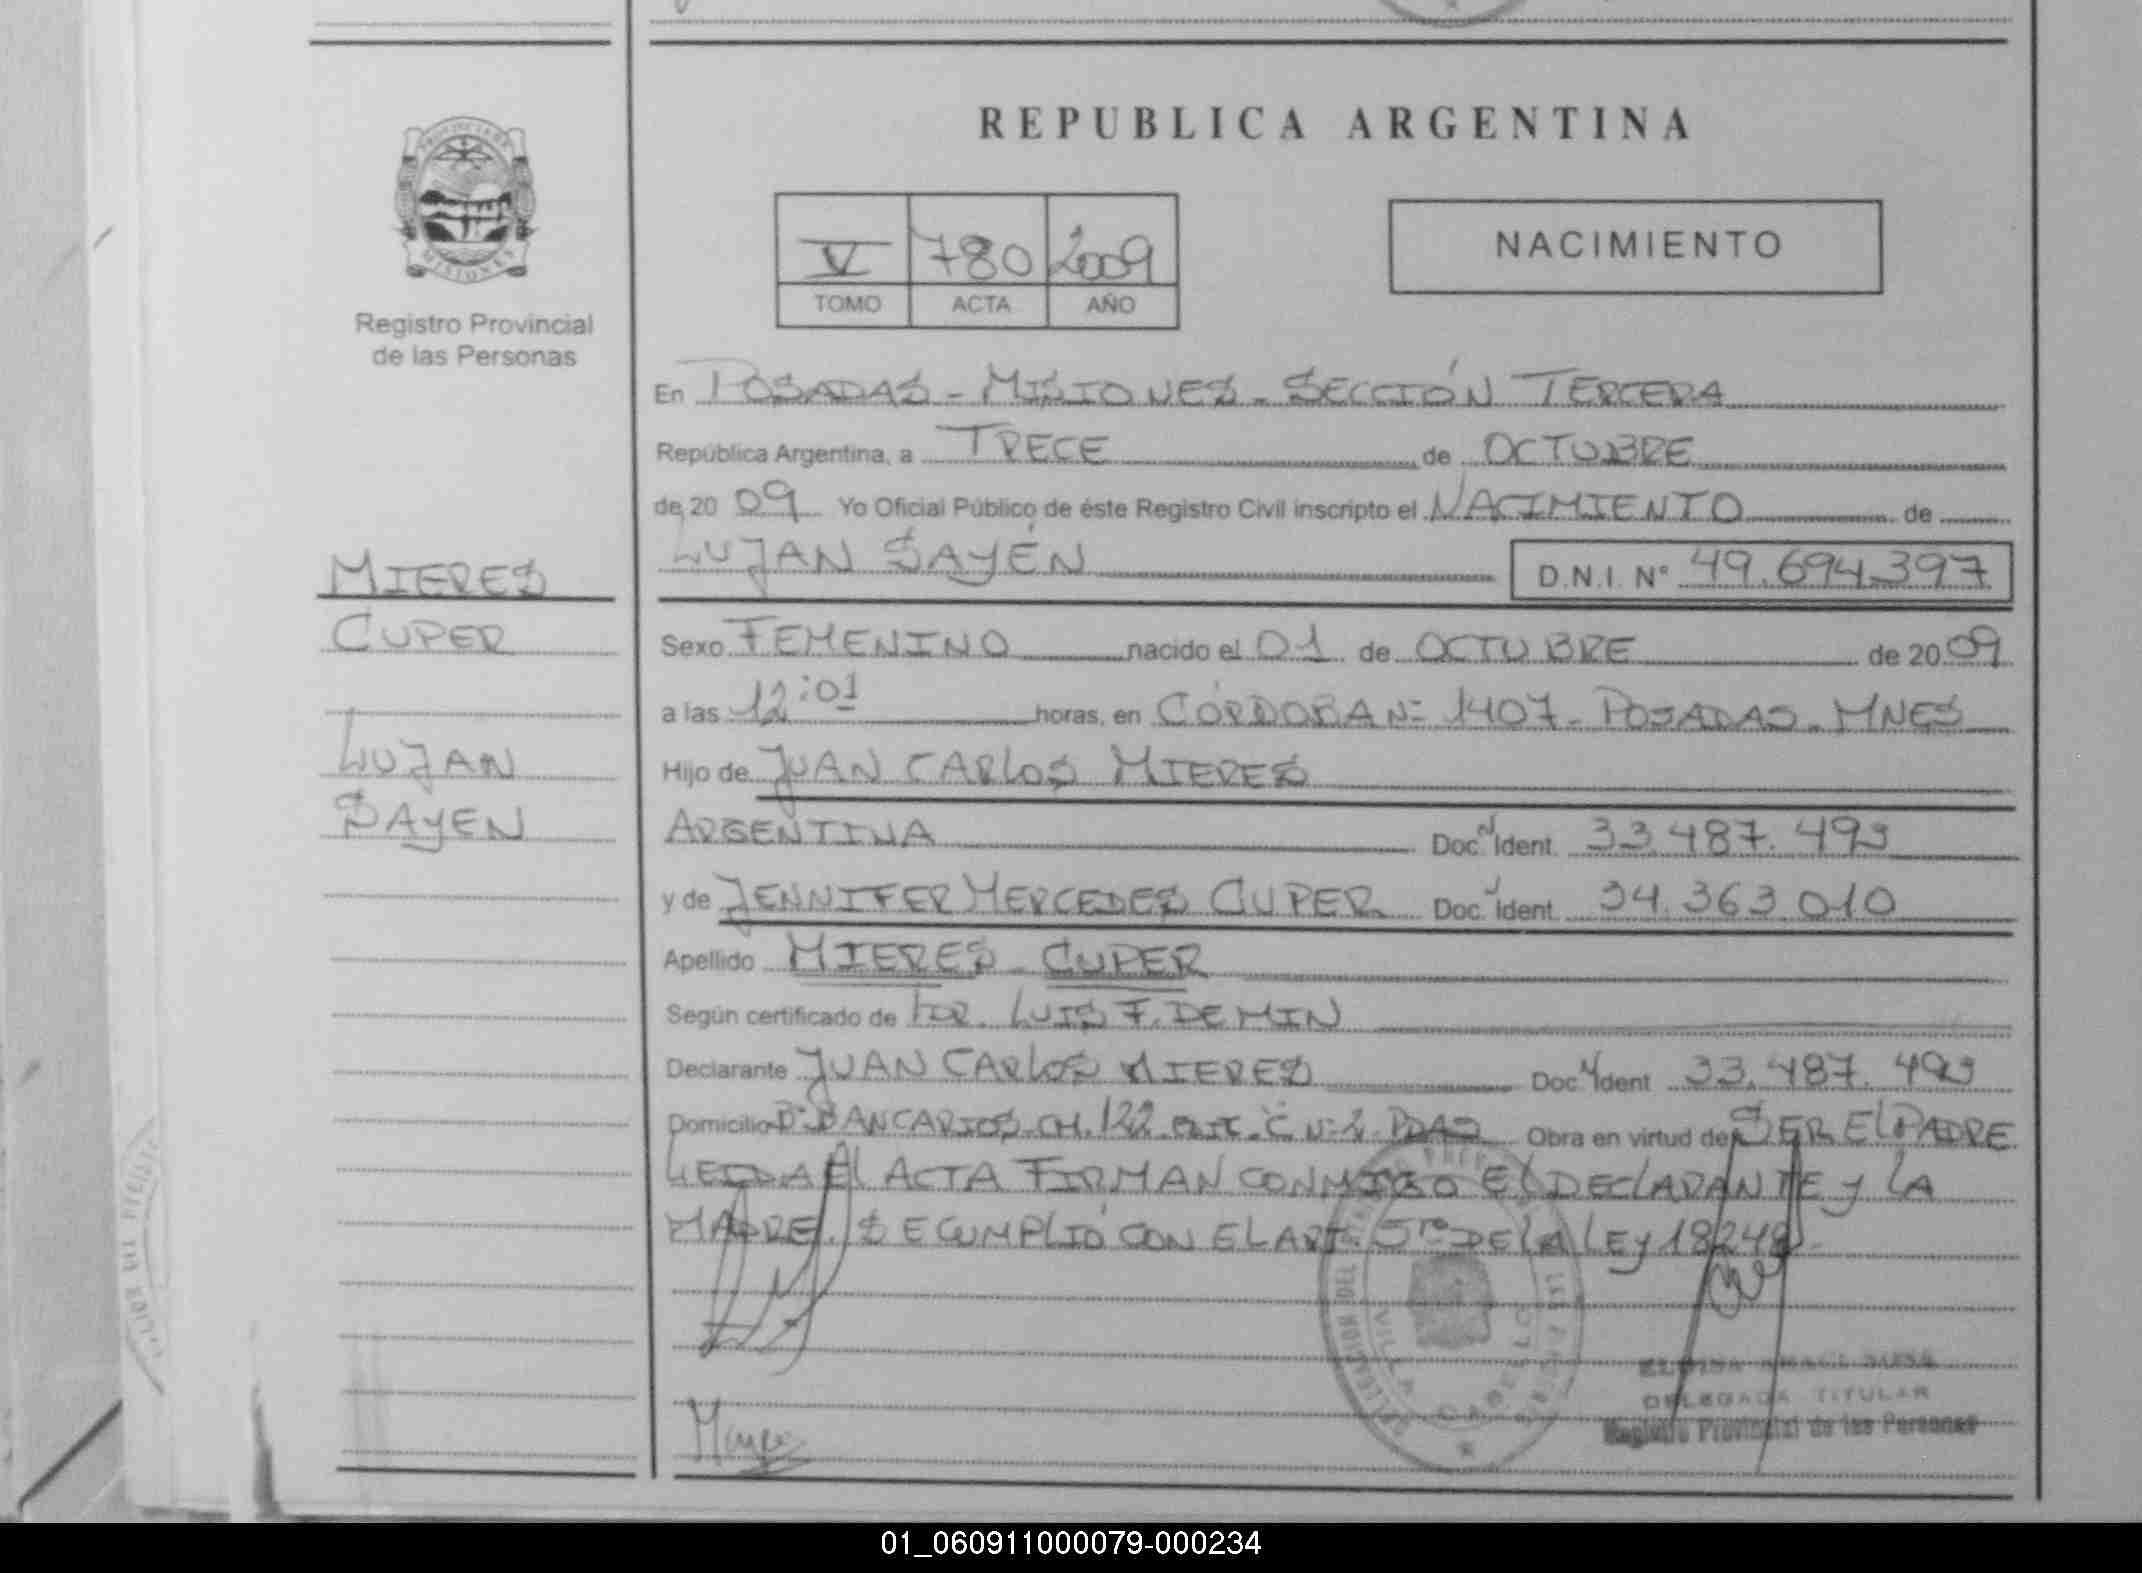 REPUBLICA ARGENTINA
PROVINCIA DE
MISIONES
Registro Provincial
de las Personas
V 780 2009
TOMO ACTA AÑO
NACIMIENTO
En POSADAS - MISIONES - SECCIÓN TERCERA
República Argentina, a TRECE de OCTUBRE
de 20 09 Yo Oficial Público de éste Registro Civil inscripto el NACIMIENTO de
LUJAN SAYÉN D.N.I. N° 49.694.397
MIERES
CUPER
LUJAN
SAYEN
Sexo FEMENINO nacido el 01 de OCTUBRE de 20 09
a las 12:01 horas, en CÓRDOBA Nº 1407 - POSADAS - MNES
Hijo de JUAN CARLOS MIERES
ARGENTINA Doc. Ident. 33.487.493
y de JENNIFER MERCEDES CUPER Doc. Ident. 34.363.010
Apellido MIERES - CUPER
Según certificado de DR. LUIS F. DEMIN
Declarante JUAN CARLOS MIERES Doc. Ident. 33.487.493
Domicilio Bº BANCARIOS CH. 122 C Nº 2 PDAS Obra en virtud de SER EL PADRE
LEIDA EL ACTA FIRMAN CONMIGO EL DECLARANTE y LA
MADRE. SE CUMPLIÓ CON EL ART. 5to DE LA LEy 18248 -
DELEGACION DEL
VILLA CABELLO
DELEGADA TITULAR
Registro Provincial de las Personas
01_060911000079-000234